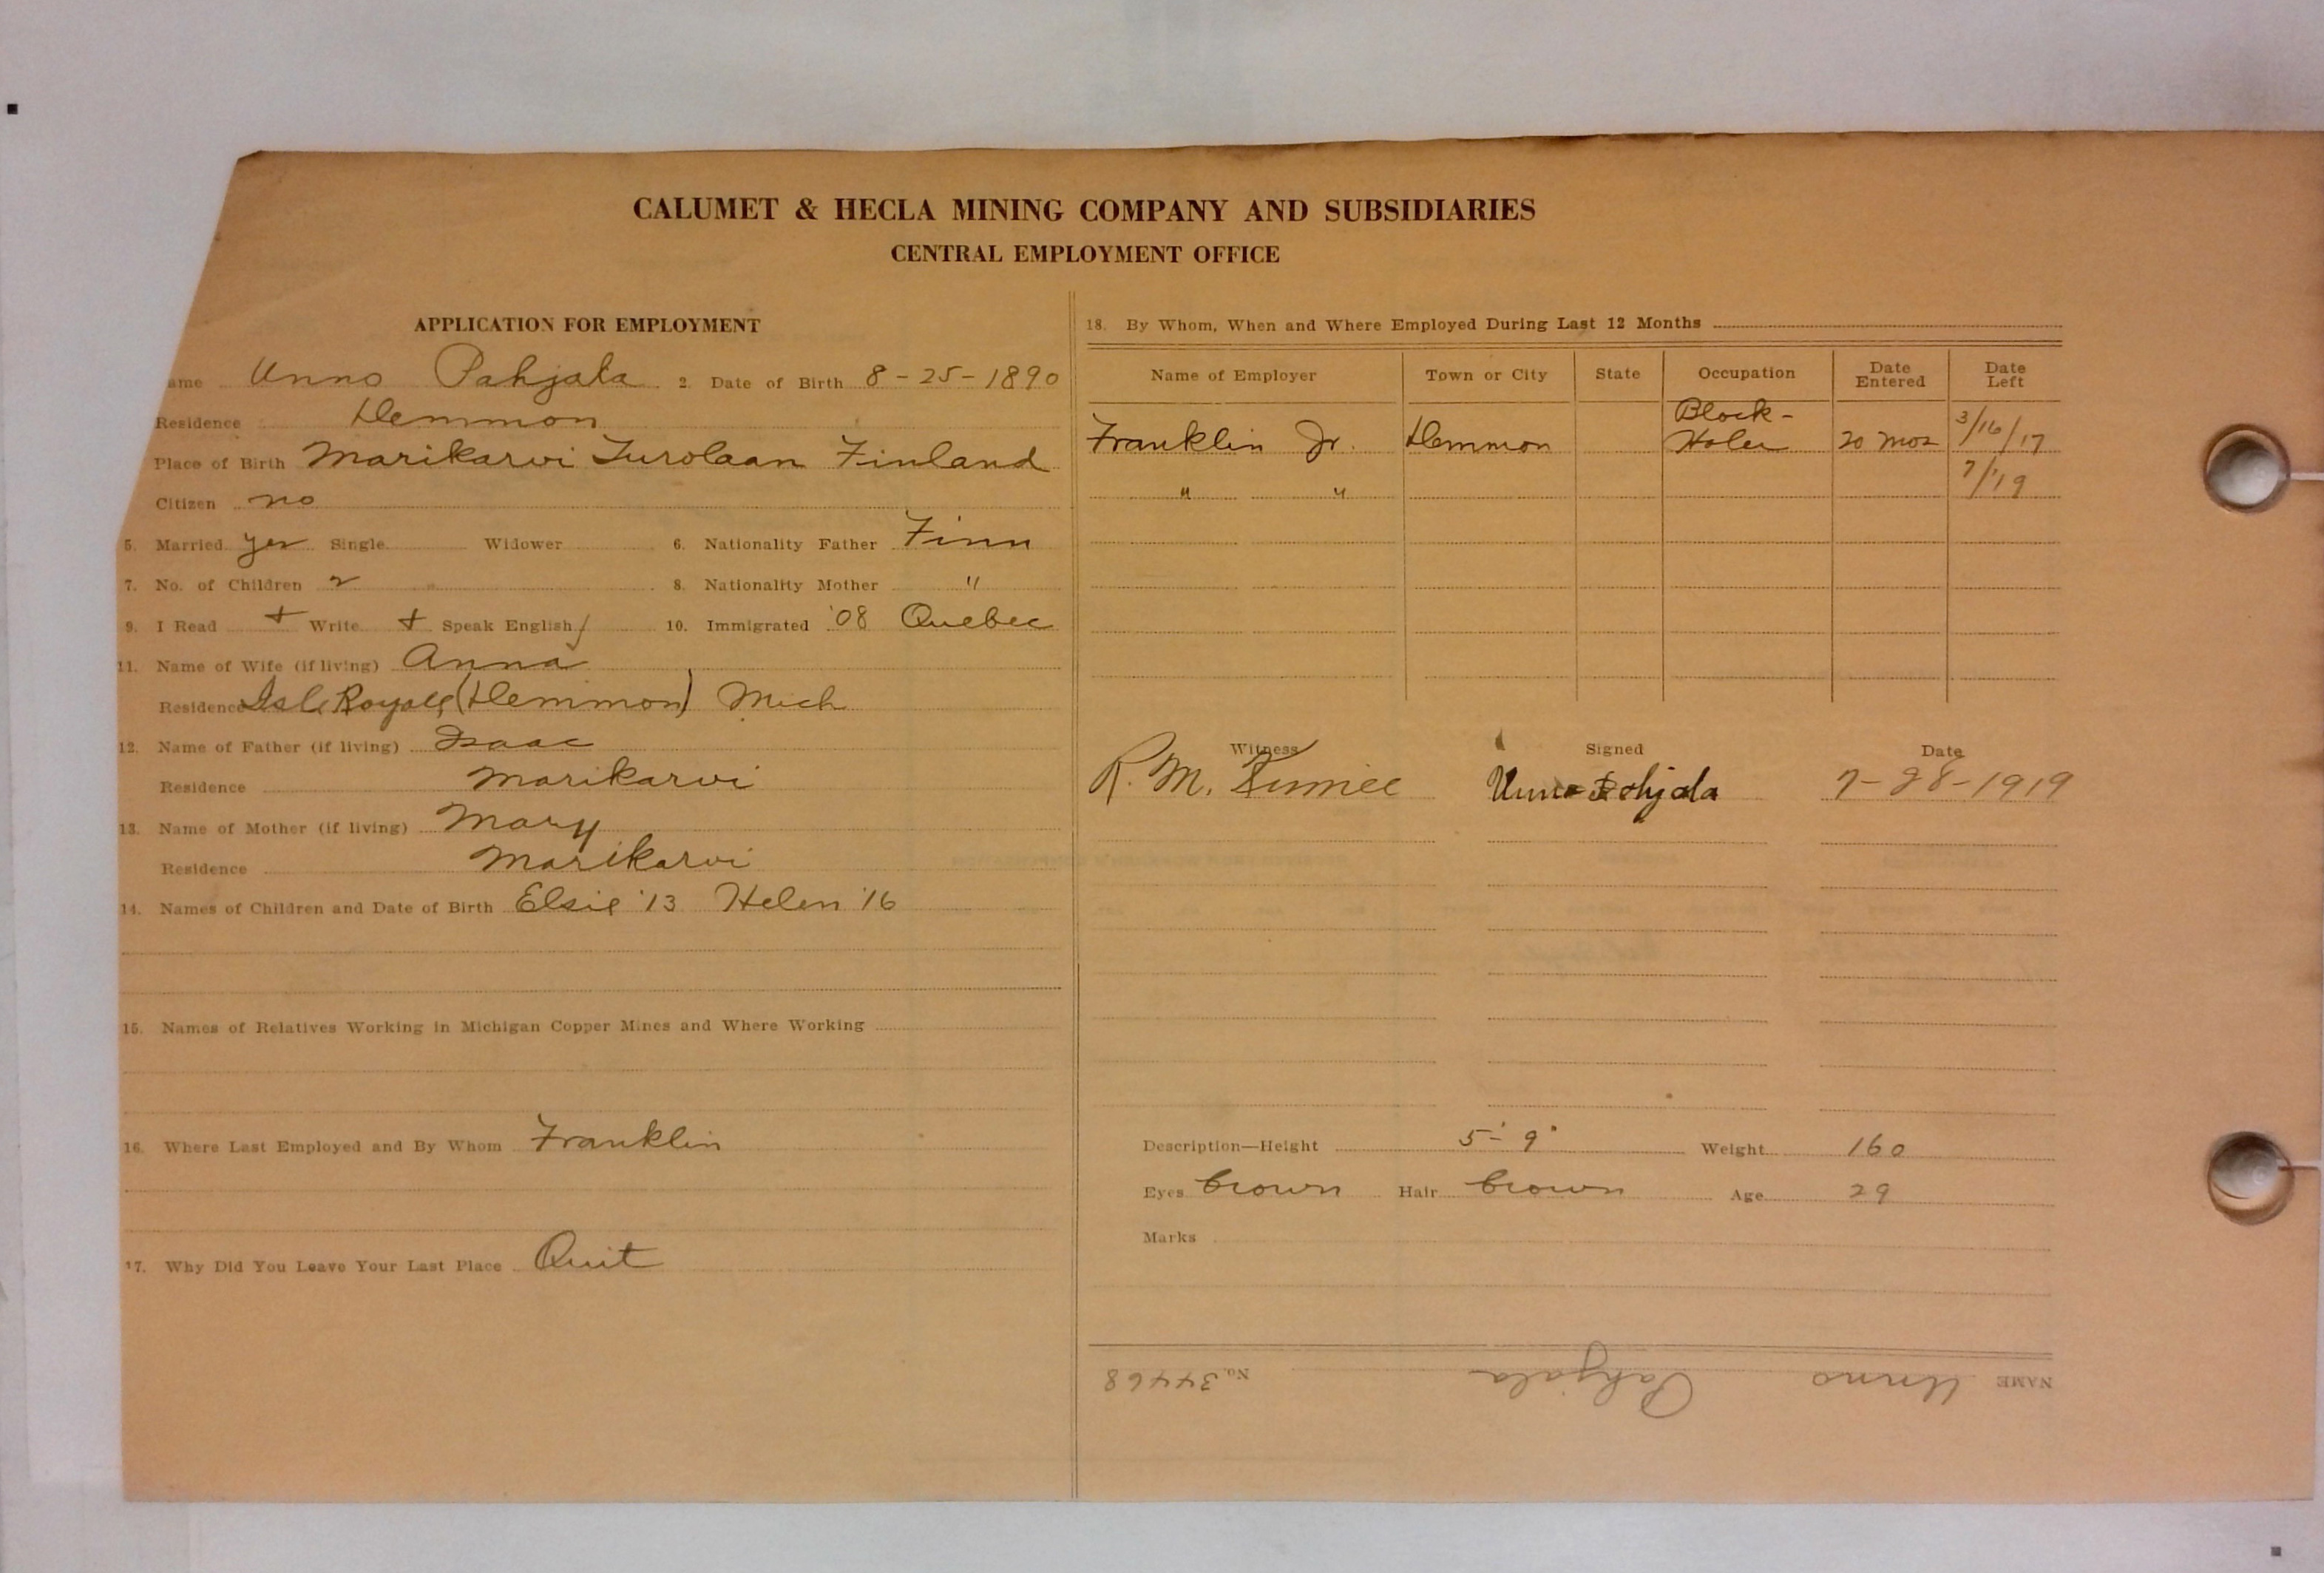 CALUMET & HECLA MINING COMPANY AND SUBSIDIARIES
CENTRAL EMPLOYMENT OFFICE
APPLICATION FOR EMPLOYMENT
ame Unno Pahjala 2. Date of Birth 8-25-1890
Residence Demmon
Place of Birth Marikarvi Turolaan Finland
Citizen no
5. Married yes Single Widower 6. Nationality Father Finn
7. No. of Children 2 8. Nationality Mother "
9. I Read + Write + Speak English / 10. Immigrated '08 Quebec
11. Name of Wife (if living) Anna
Residence Isle Royale (Demmon) Mich
12. Name of Father (if living) Isaac
Residence Marikarvi
13. Name of Mother (if living) Mary
Residence Marikarvi
14. Names of Children and Date of Birth Elsie '13 Helen '16
15. Names of Relatives Working in Michigan Copper Mines and Where Working
16. Where Last Employed and By Whom Franklin
17. Why Did You Leave Your Last Place Quit
18. By Whom, When and Where Employed During Last 12 Months
Name of Employer Town or City State Occupation Date Entered Date Left
Franklin Jr. Demmon Block-Holer 20 mos 3/16/17
" " 7/19
Witness Signed Date
R. M. Unno Pohjala 7-28-1919
Description—Height 5'-9" Weight 160
Eyes brown Hair brown Age 29
Marks
NAME Unno Pahjala No. 34468